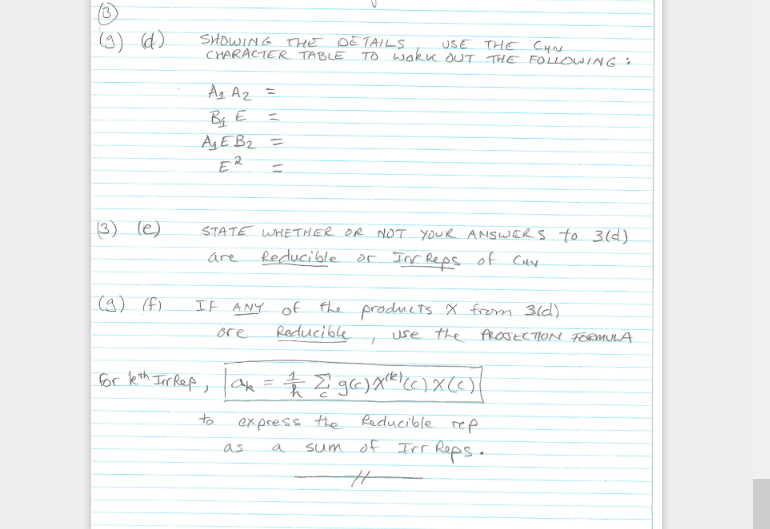 (3)
(9) (d) SHOWING THE DETAILS, USE THE C4V
CHARACTER TABLE TO WORK OUT THE FOLLOWING :
A1 A2 =
B1 E =
A1 E B2 =
E² =
(3) (e) STATE WHETHER OR NOT YOUR ANSWERS to 3(d)
are Reducible or Irr Reps of C4V
(9) (f) IF ANY of the products X from 3(d)
are Reducible, use the PROJECTION FORMULA
for kth Irr Rep, ak = 1/h Σc g(c) χ^(k)(c) χ(c)
to express the Reducible rep
as a sum of Irr Reps.